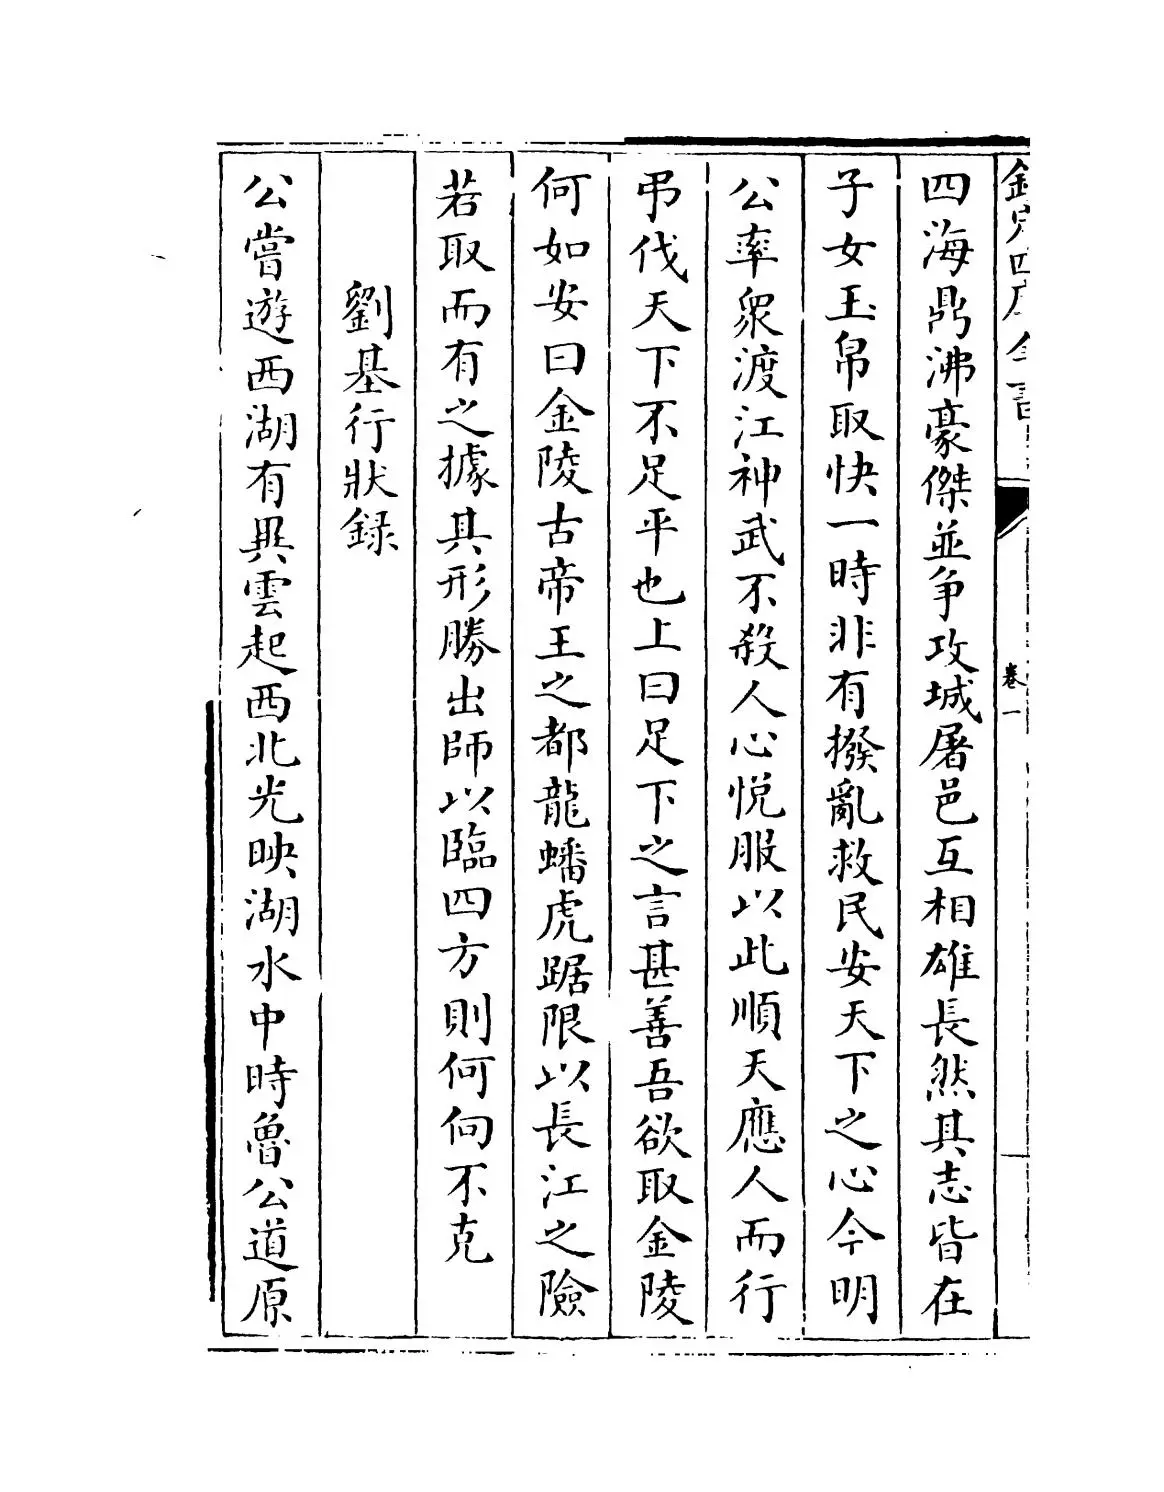 欽定四庫全書
卷一
四海鼎沸豪傑並争攻城屠邑互相雄長然其志皆在
子女玉帛取快一時非有撥亂救民安天下之心今明
公率衆渡江神武不殺人心悦服以此順天應人而行
弔伐天下不足平也上曰足下之言甚善吾欲取金陵
何如安曰金陵古帝王之都龍蟠虎踞限以長江之險
若取而有之據其形勝出師以臨四方則何向不克
劉基行狀録
公嘗遊西湖有異雲起西北光映湖水中時魯公道原